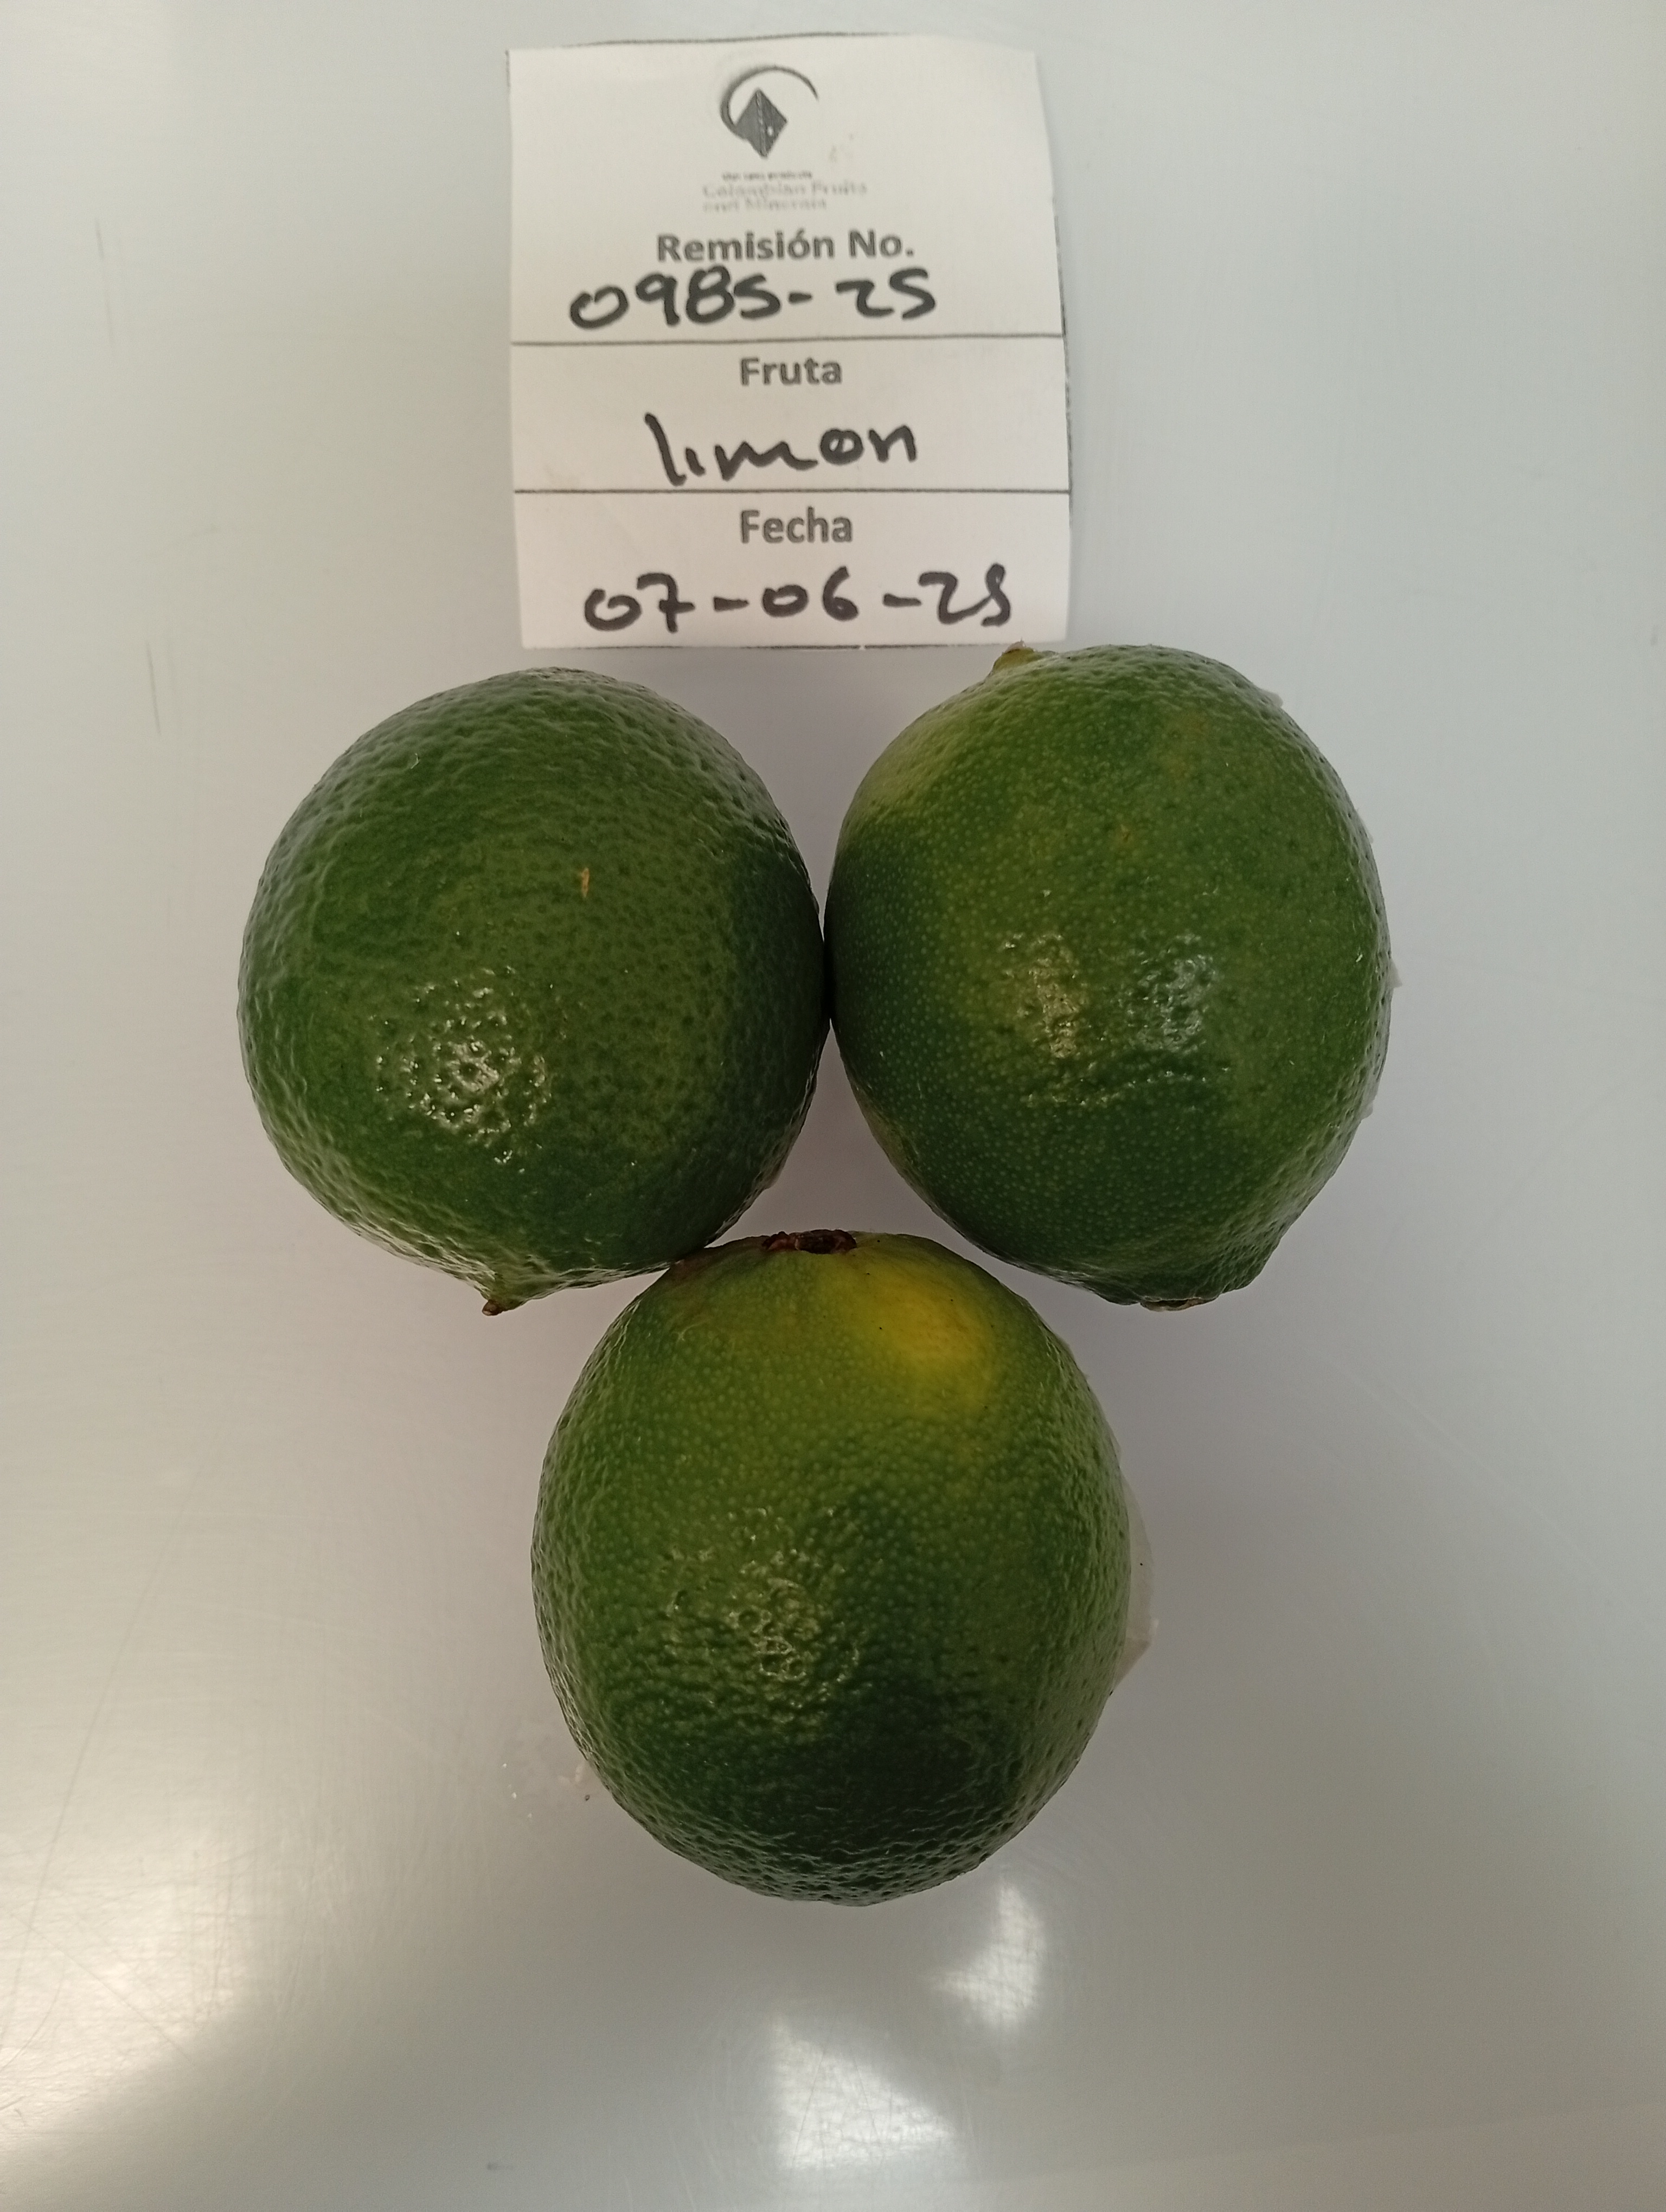 Colombian Fruits
and Minerals
Remisión No.
0985-25
Fruta
limon
Fecha
07-06-25